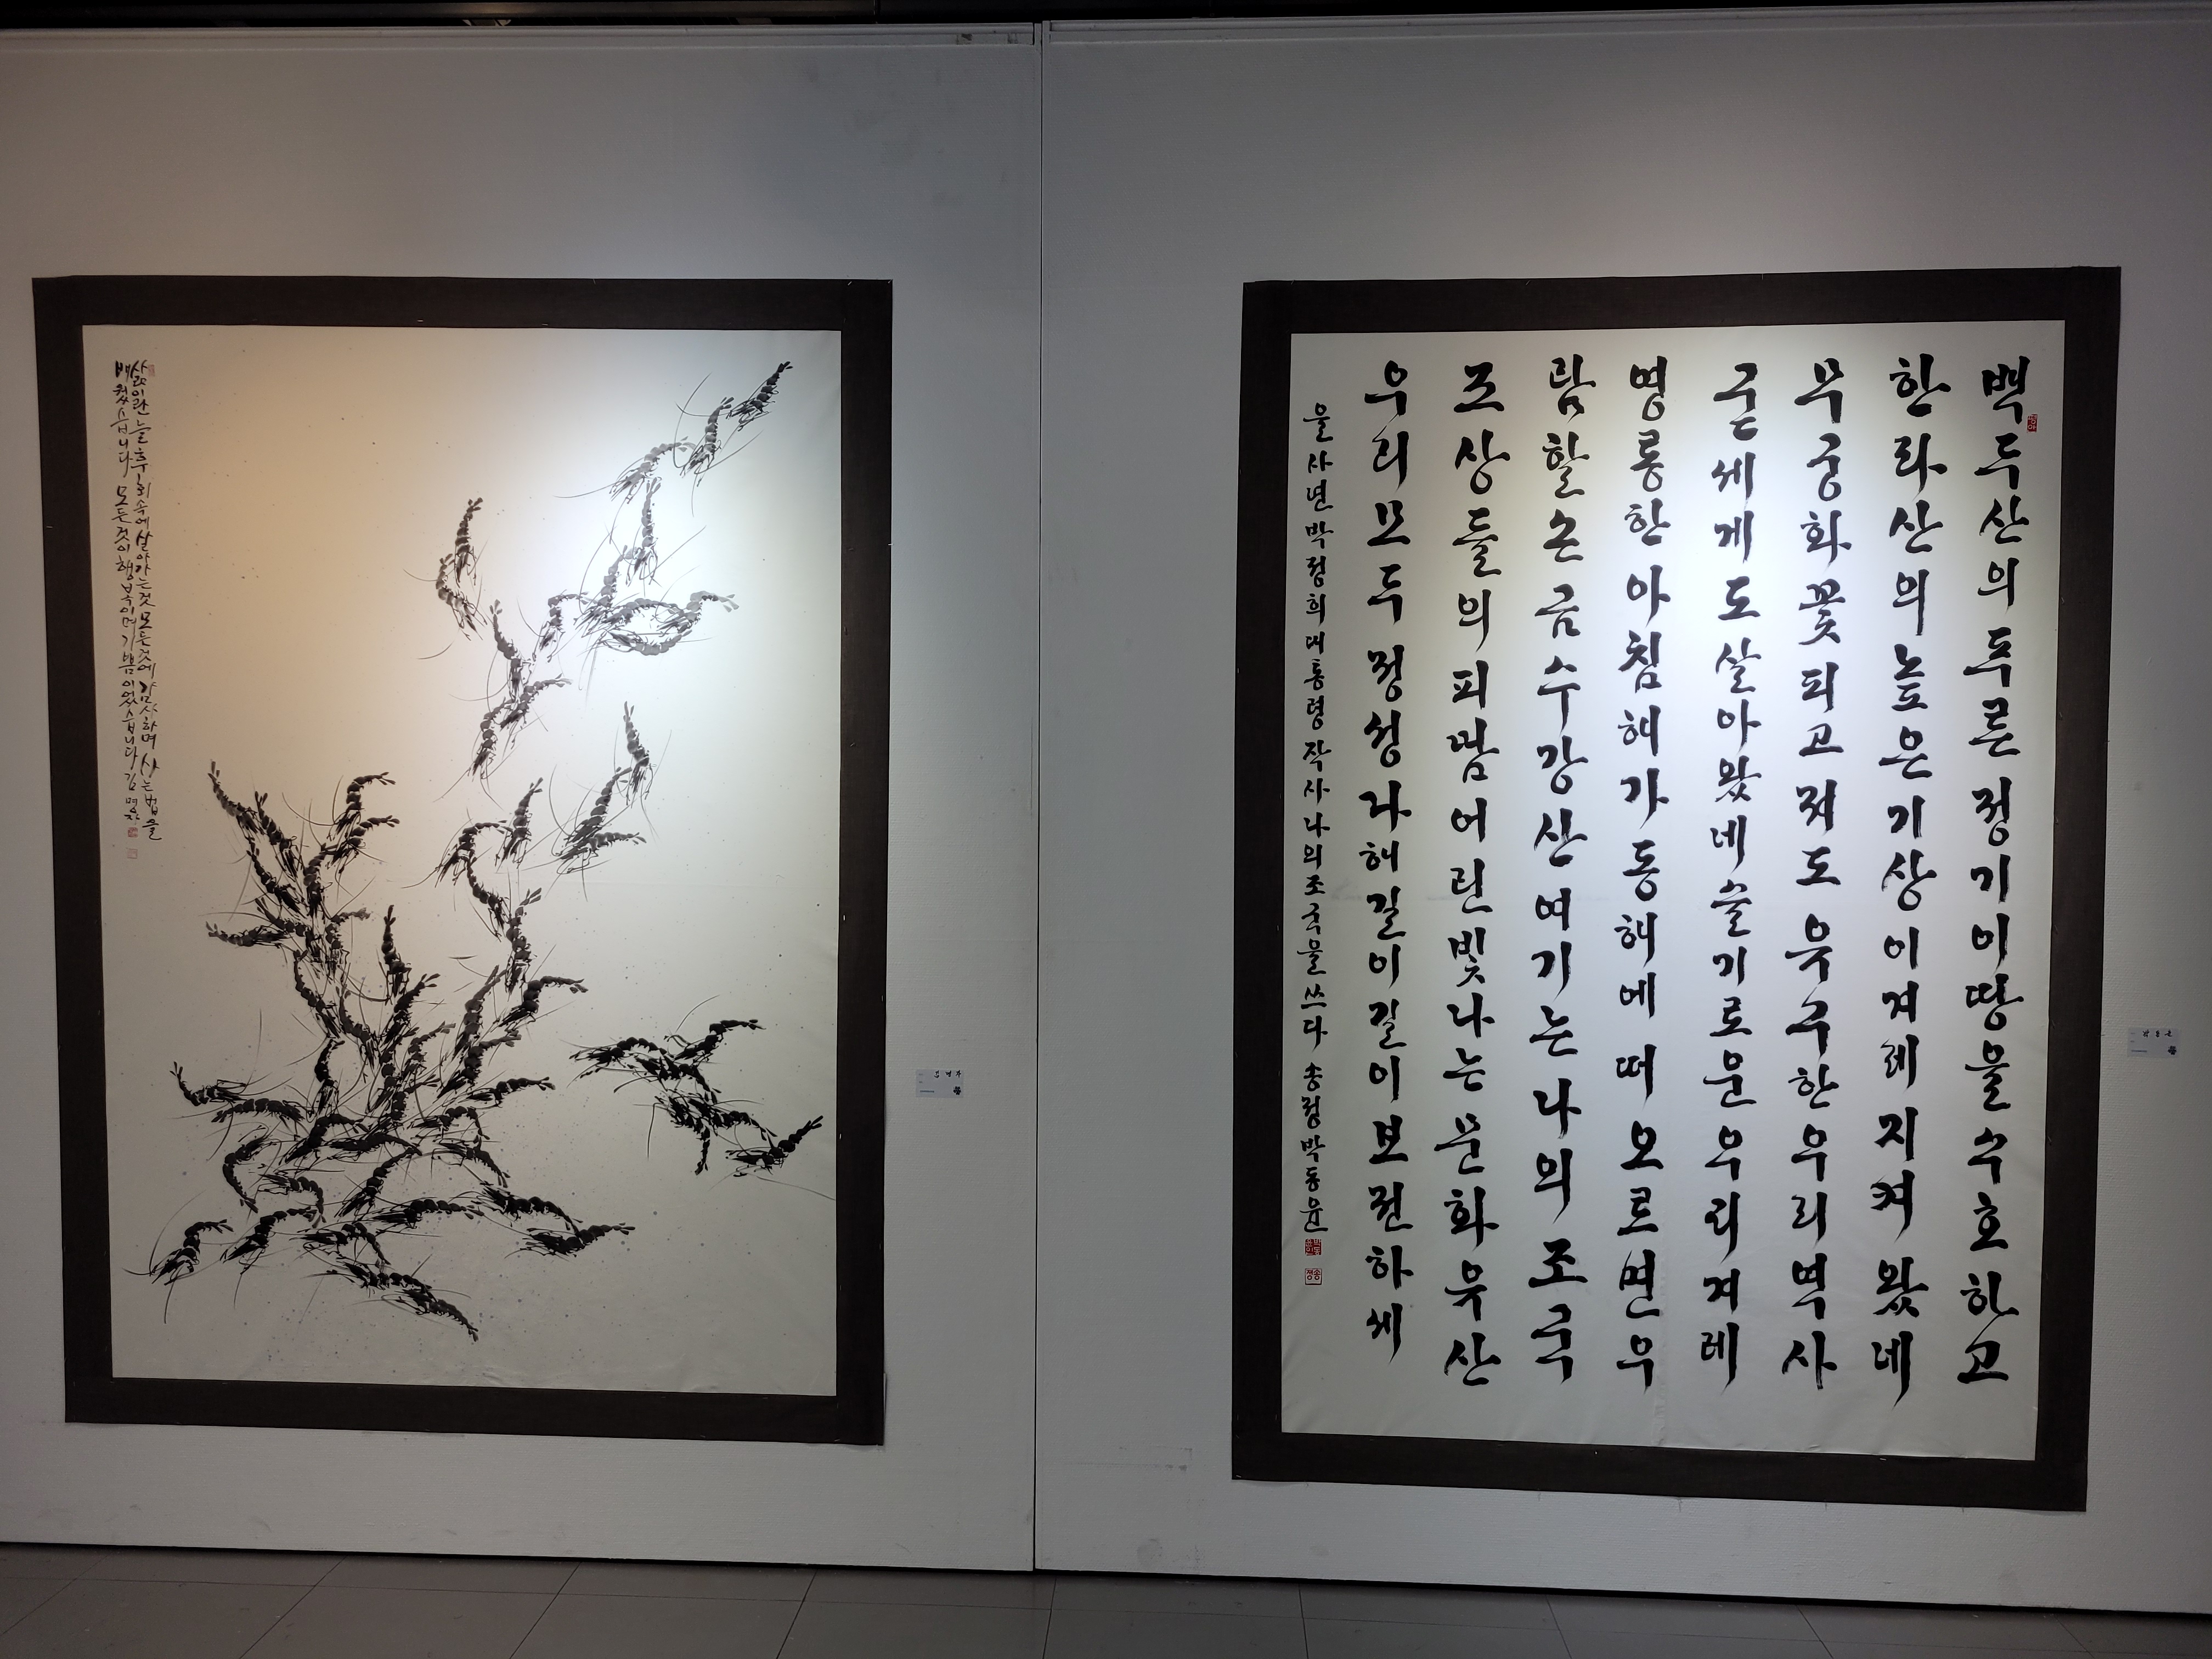 삶이란 늘 후회속에 살아가는것 모든것에 감사하며 사는법을
배웠습니다 모든것이 행복이며 기쁨이었습니다 김명자
백두산의푸른정기이땅을수호하고
한라산의높은기상이겨레지켜왔네
무궁화꽃피고져도유구한우리역사
굳세게도살아왔네슬기로운우리겨레
영롱한아침해가동해에떠오르면우
람할손금수강산여기는나의조국
조상들의피땀어린빛나는문화유산
우리모두정성다해길이길이보전하세
을사년박정희대통령작사나의조국을쓰다 송정박동윤